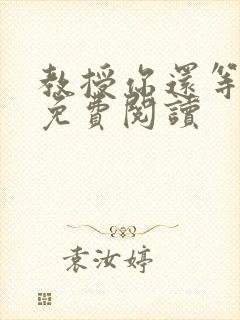 教授你還等
免費閱讀
袁汝婷